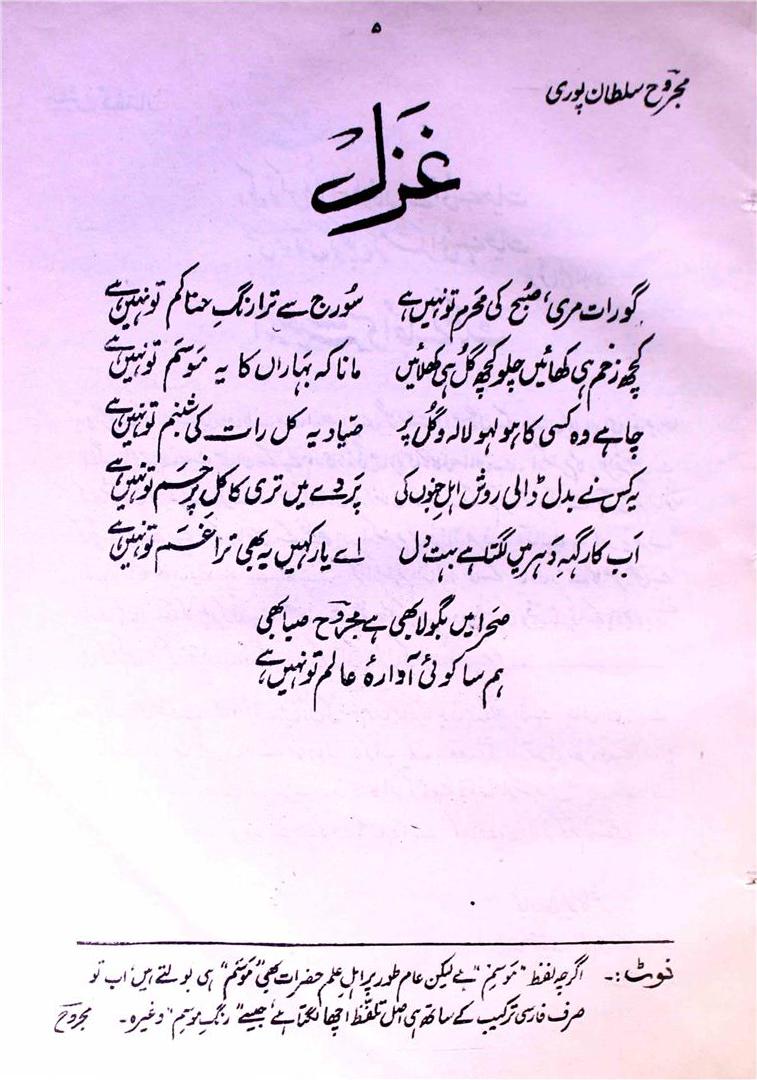 ۵
مجروحؔ سلطان پوری
غزل
گو رات مری، صُبح کی محَرم تو نہیں ہے سُورج سے ترا رنگِ حنا کم تو نہیں ہے
کچھ زخم ہی کھائیں چلو کچھ گُل ہی کھلائیں مانا کہ بہاراں کا یہ مَوسَم تو نہیں ہے
چاہے وہ کسی کا ہو لہو لالہ و گُل پر صیّاد یہ کل رات کی شبنم تو نہیں ہے
یہ کس نے بدل ڈالی روش اہلِ جنوں کی پَردے میں تری کاکلِ پُرخَم تو نہیں ہے
اَب کارگہِ دَہر میں لگتا ہے بہت دِل اے یار کہیں یہ بھی ترا غَم تو نہیں ہے
صَحرا میں بگولا بھی ہے مجروحؔ صبا بھی
ہم سا کوئی آوارۂ عالم تو نہیں ہے
نوٹ:۔ اگرچہ لفظ "مَوسِم" ہے لیکن عام طور پر اہلِ علم حضرات بھی "مَوسَم" ہی بولتے ہیں، اب تو
صرف فارسی ترکیب کے ساتھ ہی اصل تلفّظ اچھا لگتا ہے، جیسے "رنگِ موسِم" وغیرہ۔ مجروحؔ